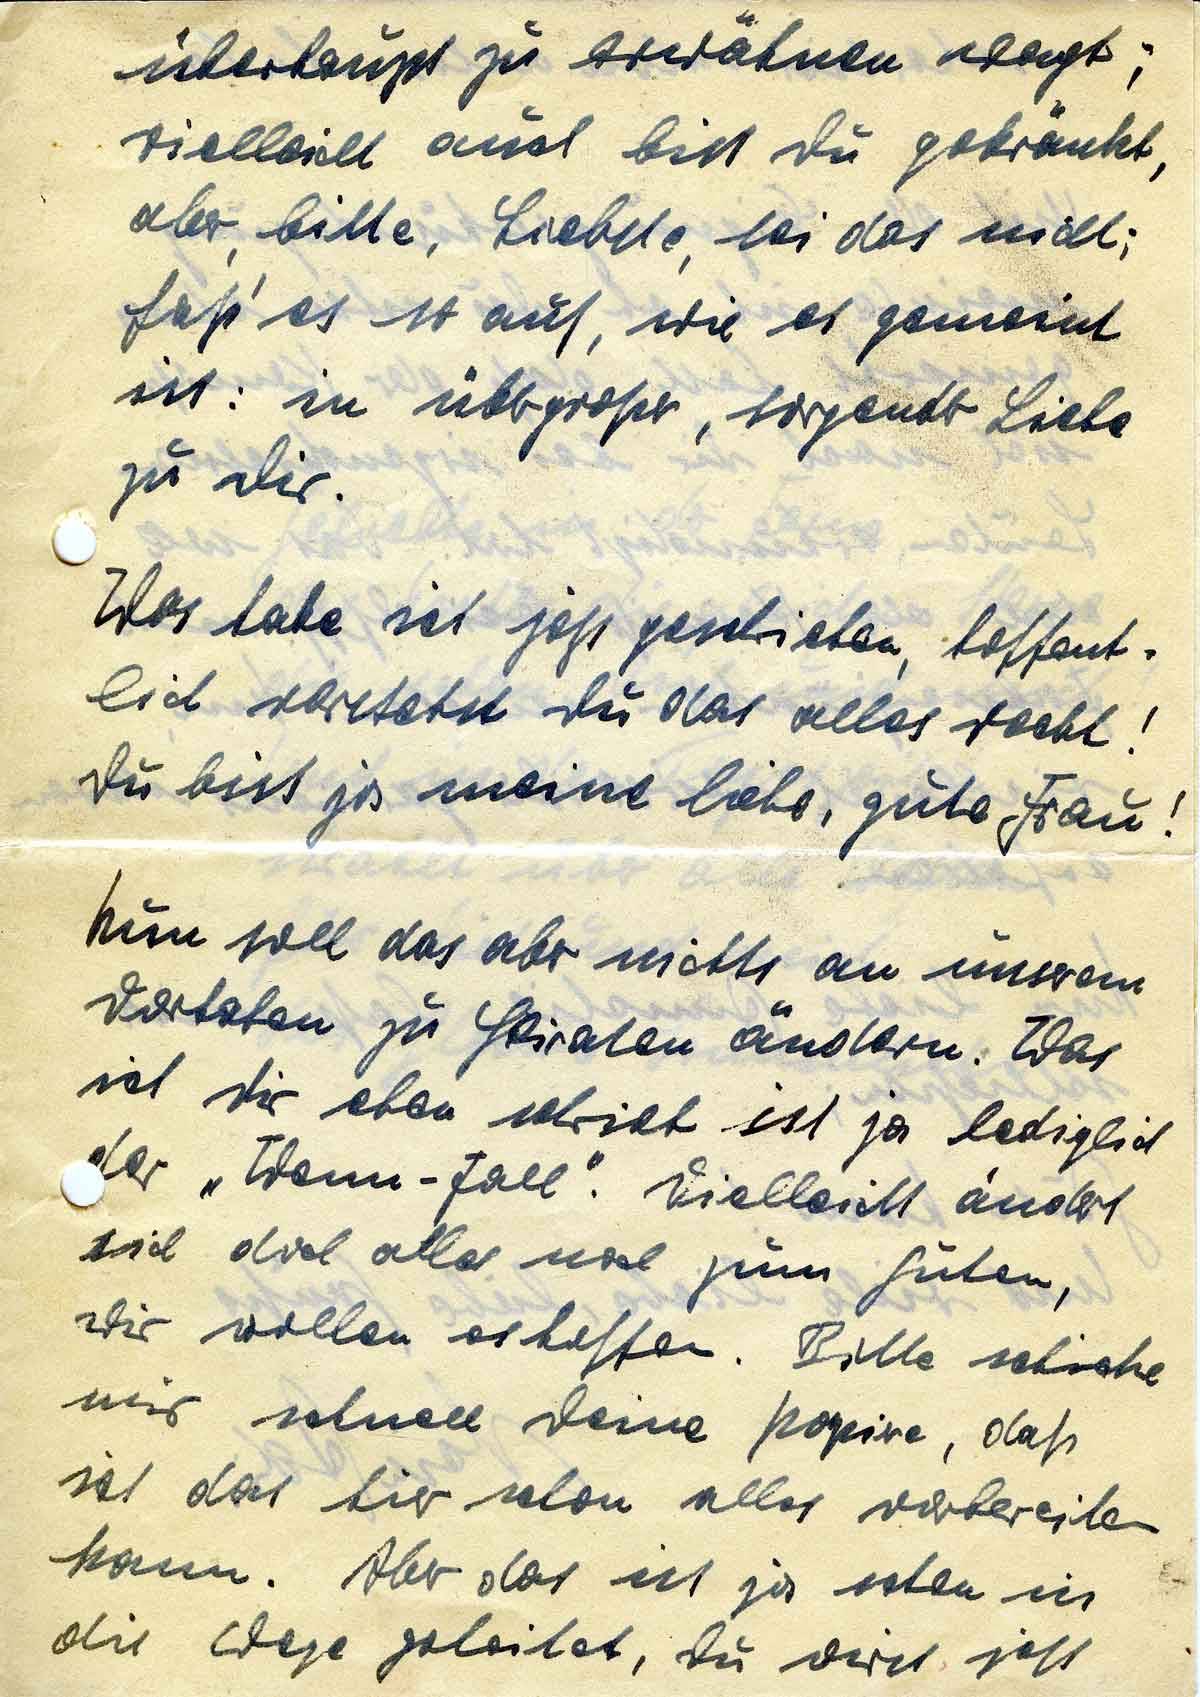 überhaupt zu erwähnen wagt;
vielleicht auch bist Du gekränkt,
aber, bitte, Liebste, sei das nicht;
faß' es so auf, wie es gemeint
ist: in übergroßer, sorgender Liebe
zu Dir.
Was habe ich jetzt geschrieben, hoffent-
lich verstehst Du das alles recht!
Du bist ja meine liebe, gute Frau!
Nun soll das aber nichts an unserem
Vorhaben zu Heiraten ändern. Was
ich Dir eben schrieb ist ja lediglich
der „Wenn-Fall“. Vielleicht ändert
sich doch alles noch zum Guten,
wir wollen es hoffen. Bitte schicke
mir schnell Deine Papire, daß
ich das hier schon alles vorbereiten
kann. Aber das ist ja schon in
die Wege geleitet, Du wirst jetzt